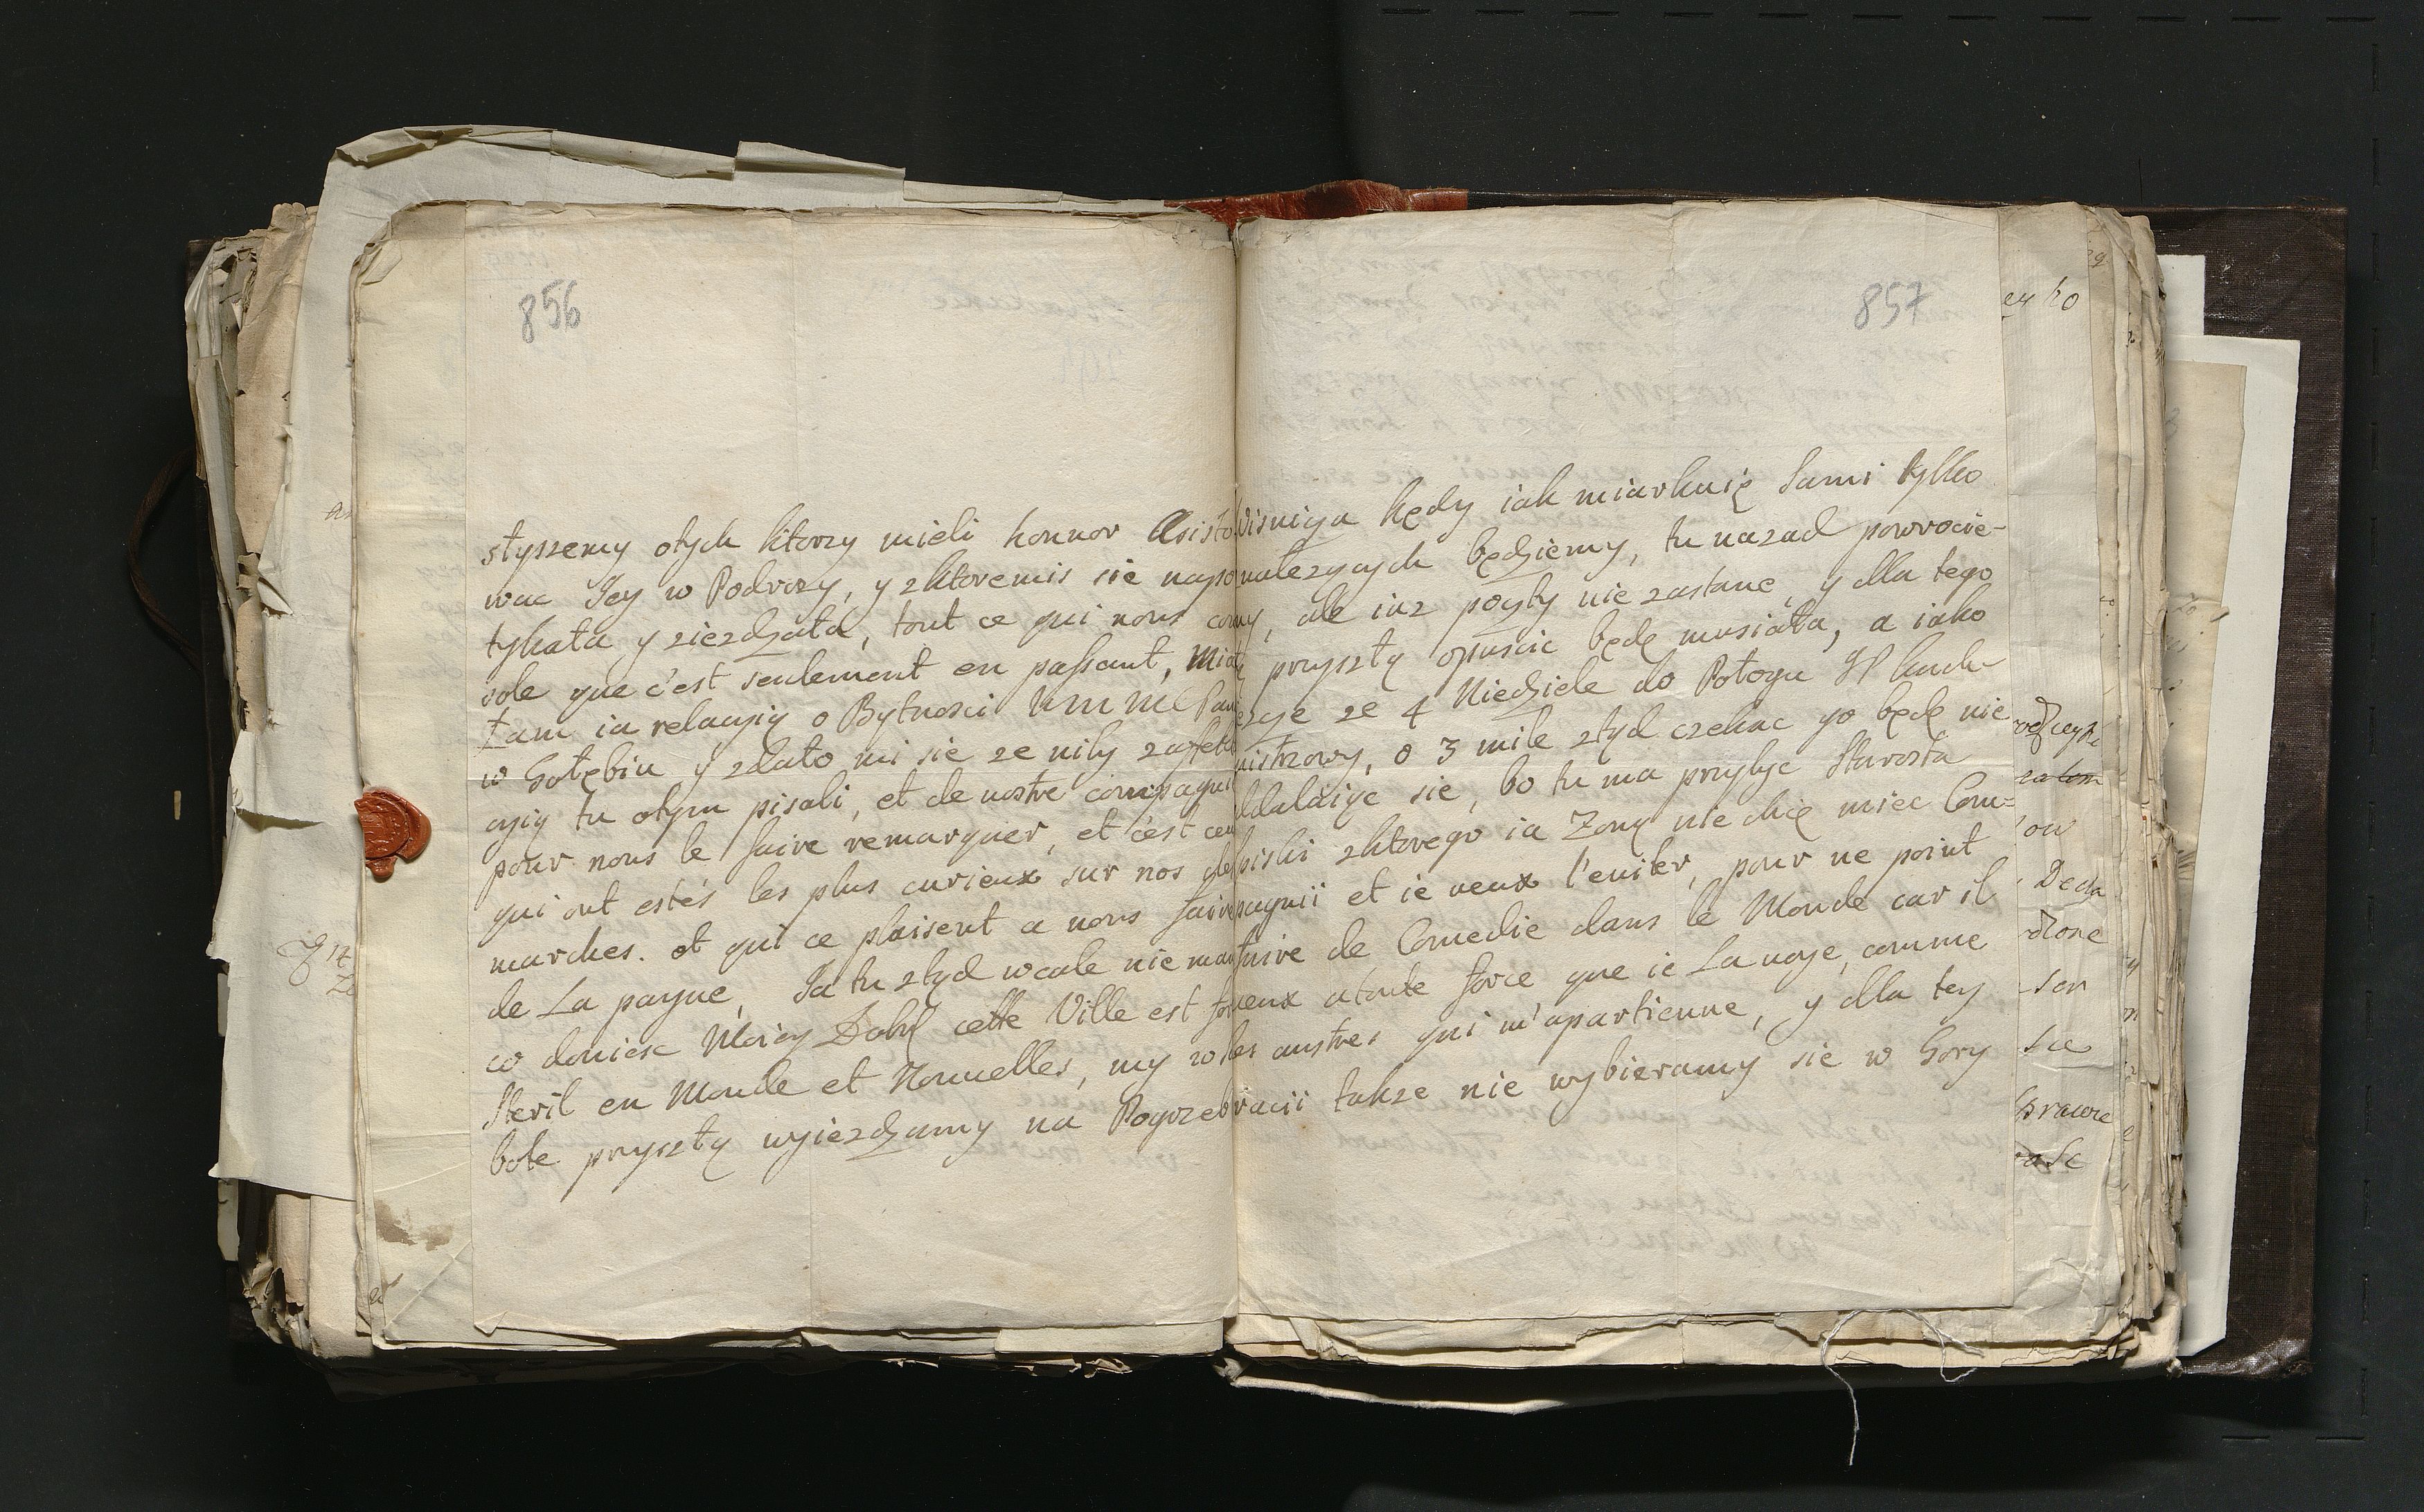 856
słyszemy otych ktorzy mieli honnor Asisto
wac Jey w Podrozy, y zktoremis sie napo
tykała y ziezdzała, tout ce qui nous con
sole que c'est seulement en passant, mia
łam ia relacyią o Bytnosci WMM Pani
w Gołębiu y zdało mi sie ze niby zaffekta
cyią tu otym pisali, et de nostre compagnie
pour nous le faire remarquer, et c'est ceu
qui ont estés les plus curieux sur nos de
marches. et qui ce plaisent a nous faire
de La payne, Ja tu ztyd wcale nie mam
co doniesc Moiey Dobr cette Ville est fort
steril en Monde et Nouvelles, my w So
bote przyszłą wyiezdzamy na Pogrzeb
857
Wisniga kędy iak miarkuię Sami tylko
nalezących będziemy, tu nazad powrocie-
my, ale iuz poczty nie zastane, y dla tego
przyszłą opuscic będę musiała, a iako
ze 4 Niedziele do Połogu
o 3 mile ztyd czekac go będę nie
oddalaiąc sie, bo tu ma przybyc Starosta
zktorego ia Zoną nie chcę miec Com=
pagnii et ie veux l'eviter, pour ne point
faire de Comedie dans le Monde car il
veux atoute force que ie La voye, comme
les austres qui m'apartienne, y dla tey
racii takze nie wybieramy sie w Gory